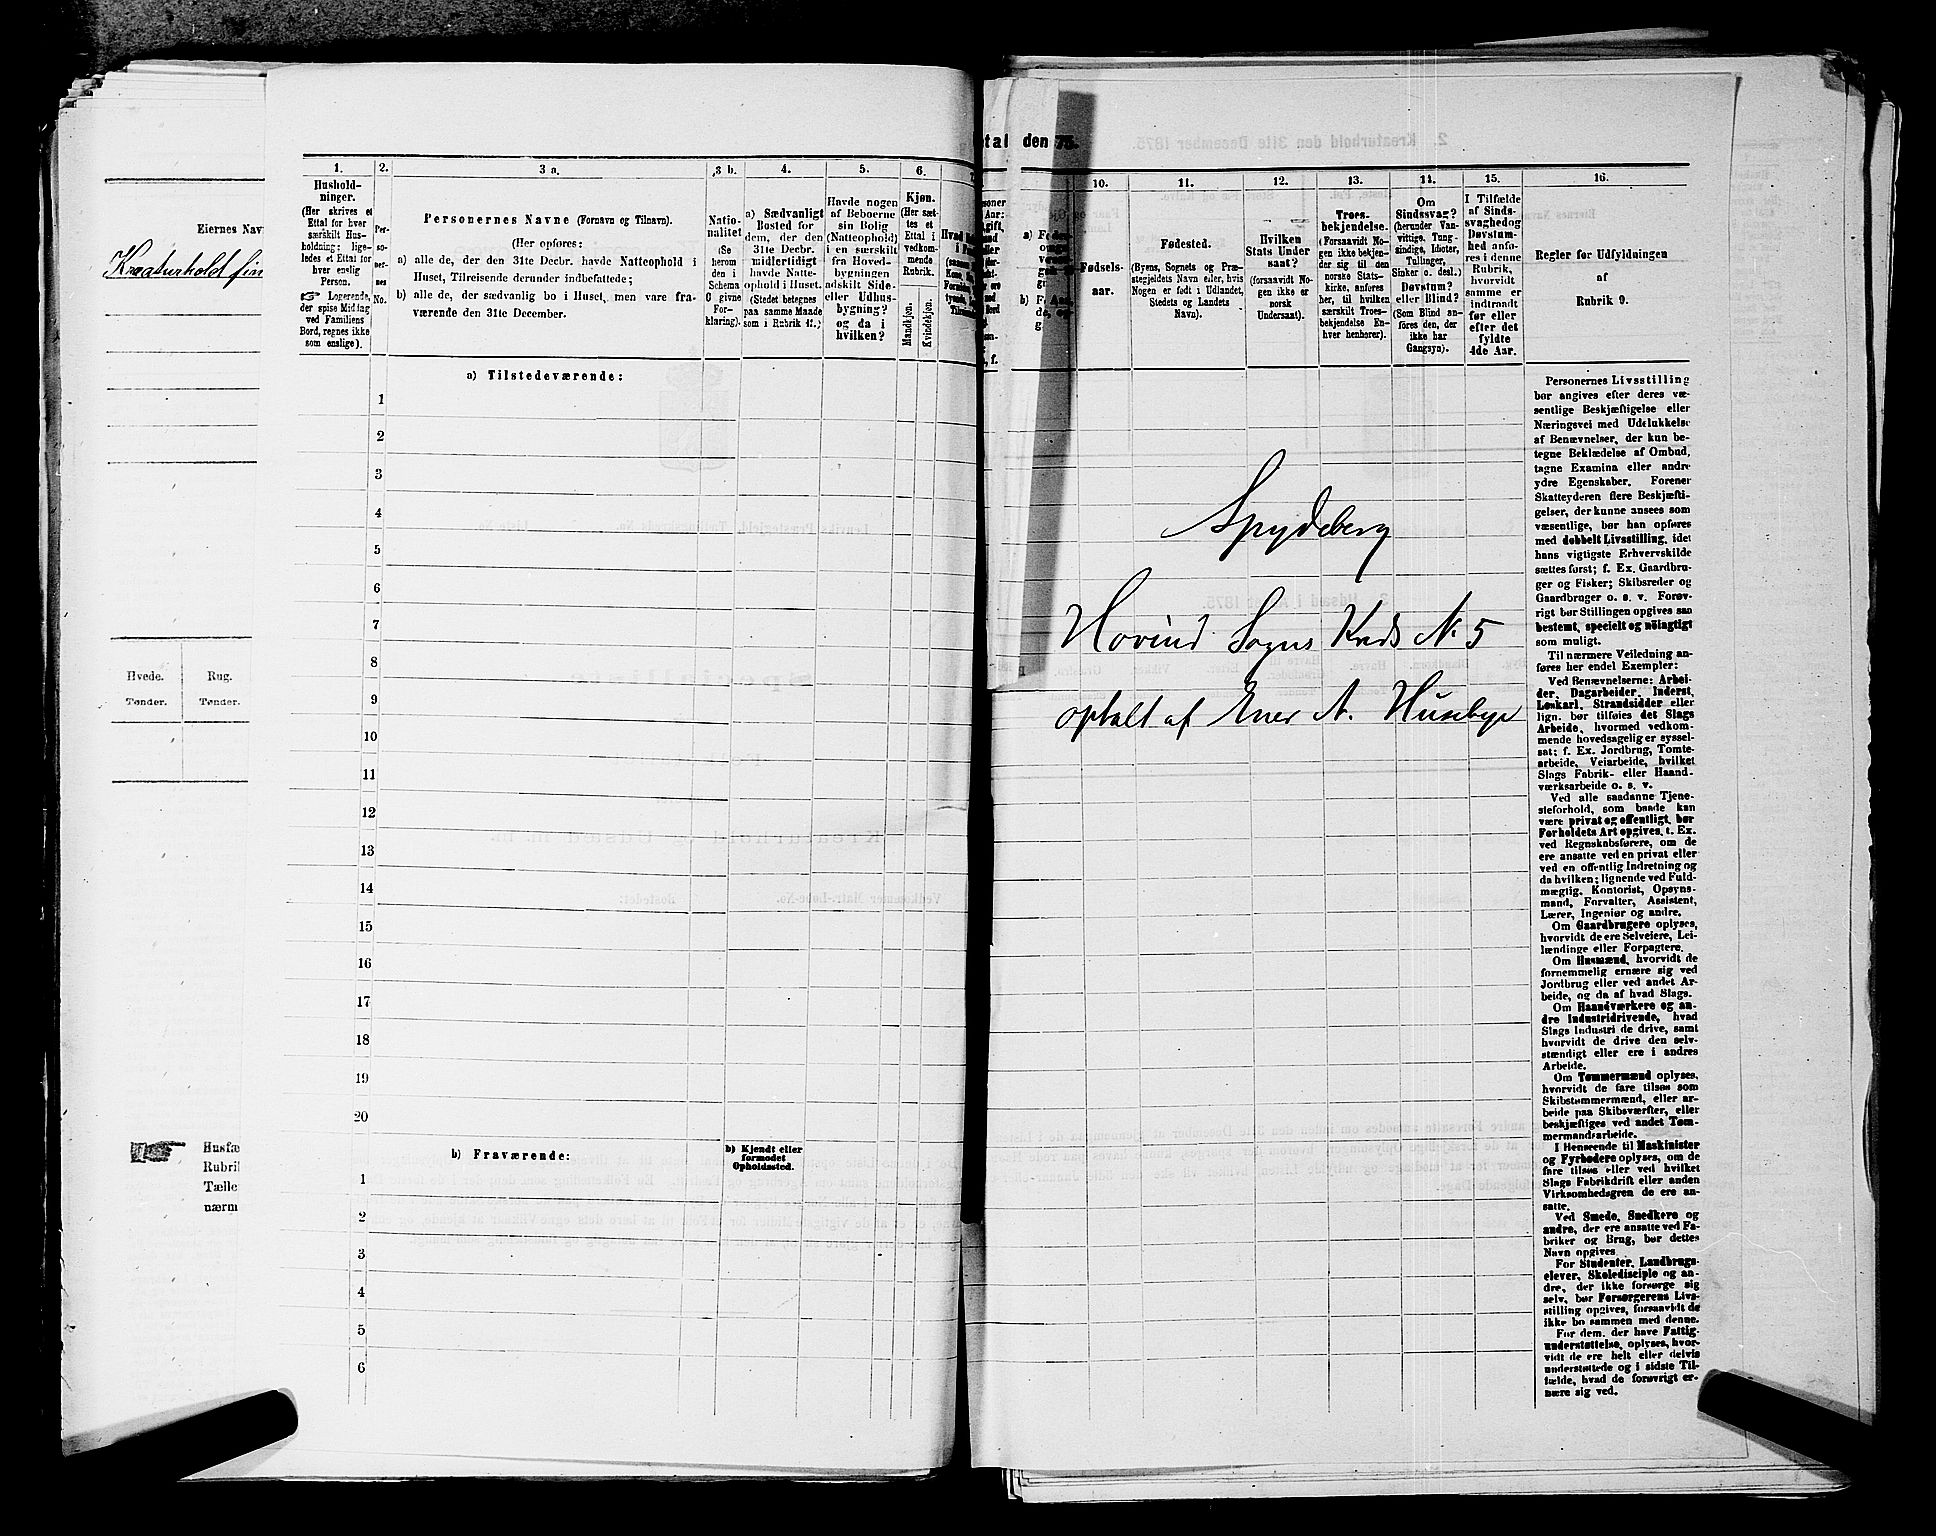 Eiernes Nav
Kreaturhold fin
Hvede.
Rug.
Tønder.
Tønder.
Husfæ
Rubrik
Tælle
nærm
1.
Hushold-
ninger.
(Her skrives et
Ettal for hver
særskilt Hus-
holdning; lige-
ledes et Ettal for
hver enslig
Person.
☞ Logerende,
der spise Middag
ved Familiens
Bord, regnes ikke
som enslige).
2.
Per-
so-
ner-
nes
No.
3 a.
Personernes Navne (Fornavn og Tilnavn).
(Her opføres:
a) alle de, der den 31te Decbr. havde Natteophold i
Huset, Tilreisende derunder indbefattede;
b) alle de, der sædvanlig bo i Huset, men vare fra-
værende den 31te December.
3 b.
Natio-
nalitet
(Se
herom
den i
Schema
C givne
For-
klaring).
4.
a) Sædvanligt
Bosted for
dem, der den
31te Decbr.
midlertidigt
havde Natte-
ophold i Huset.
(Stedet betegnes
paa samme Maade
som i Rubrik 11.)
5.
Havde nogen
af Beboerne
sin Bolig
(Natteophold)
i en særskilt
fra Hoved-
bygningen
adskilt Side-
eller Udhus-
bygning?
og da i
hvilken?
6.
Kjøn.
(Her sæt-
tes et
Ettal i
vedkom-
mende
Rubrik.
Mandkjøn.
Kvindekjøn.
a) Tilstedeværende:
1
2
3
4
5
6
7
8
9
10
11
12
13
14
15
16
17
18
19
20
b) Fraværende:
b) Kjendt eller
formodet
Opholdssted.
1
2
3
4
5
6
tal den
75.
10.
Fødsels-
aar.
11.
Fødested.
(Byens, Sognets og Præ-
stegjeldets Navn eller, hvis
Nogen er født i Udlandet,
Stedets og Landets
Navn).
12.
Hvilken
Stats Under
saat?
(forsaavidt No-
gen ikke er
norsk
Undersaat).
13.
Troes-
bekjendelse.
(Forsaavidt No-
gen ikke bekjen-
der sig til den
norske Stats-
kirke, anføres
her, til hvilken
særskilt Troes-
bekjendelse En-
hver henhører).
14.
Om
Sindssvag?
(herunder Van-
vittige, Tung-
sindige, Idioter,
Tullinger,
Sinker o. desl.)
Døvstum?
eller Blind?
(Som Blind an-
føres den, der
ikke har
Gangsyn).
15.
I Tilfælde
af Sinds-
svaghed og
Døvstum-
hed anfø-
res i denne
Rubrik,
hvorvidt
samme er
indtraadt
før eller
efter det
fyldte
4de Aar.
16.
Regler for Udfyldningen
af
Rubrik 9.
Spydeberg
Hovind Sogns Kreds N. 5
optalt af Iver A. Huseby
Personernes Livsstilling
bør angives efter deres væ-
sentlige Beskjæftigelse eller
Næringsvei med Udelukkelse
af Benævnelser, der kun be-
tegne Beklædelse af Ombud,
tagne Examina eller andre
ydre Egenskaber. Forener
Skatteyderen flere Beskjæfti-
gelser, der kunne ansees som
væsentlige, bør han opføres
med dobbelt Livsstilling, idet
hans vigtigste Erhvervskilde
sættes først; f. Ex. Gaardbru-
ger og Fisker; Skibsreder og
Gaardbruger o. s. v. Forøv-
rigt bør Stillingen opgives saa
bestemt, specielt og nöiagtigt
som muligt.
Til nærmere Veiledning an-
føres her endel Exempler:
Ved Benævnelserne: Arbei-
der, Dagarbeider, Inderst,
Løskarl, Strandsidder eller
lign. bør tilføies det Slags
Arbeide, hvormed vedkom-
mende hovedsagelig er syssel-
sat; f. Ex. Jordbrug, Tomte-
arbeide, Veiarbeide, hvilket
Slags Fabrik- eller Haand-
værksarbeide o. s. v.
Ved alle saadanne Tjene-
steforhold, som baade kan
være privat og offentligt, bør
Forholdets Art opgives, t. Ex.
ved Regnskabsførere, om de
ere ansatte ved en privat eller
ved en offentlig Indretning og
da hvilken; lignende ved Fuld-
mægtig, Kontorist, Opsyns-
mand, Forvalter, Assistent,
Lærer, Ingeniør og andre.
Om Gaardbrugere oplyses,
hvorvidt de ere Selveiere, Lei-
lændinge eller Forpagtere.
Om Husmænd, hvorvidt de
fornemmelig ernære sig ved
Jordbrug eller ved andet Ar-
beide, og da af hvad Slags.
Om Haandværkere og an-
dre Industridrivende, hvad
Slags Industri de drive, samt
hvorvidt de drive den selv-
stændigt eller ere i andres
Arbeide.
Om Tømmermænd oplyses,
hvorvidt de fare tilsøs som
Skibstømmermænd, eller ar-
beide paa Skibsværfter, eller
beskjæftiges ved andet Tøm-
mermandsarbeide.
I Henseende til Maskinister
og Fyrbødere oplyses, om de
fare tilsøs eller ved hvilket
Slags Fabrikdrift eller anden
Virksomhedsgren de ere an-
satte.
Ved Smede, Snedkere og
andre, der ere ansatte ved Fa-
briker og Brug, bør dettes
Navn opgives.
For Studenter, Landbrugs-
elever, Skoledisciple og an-
dre, der ikke forsørge sig
selv, bør Forsørgerens Livs-
stilling opgives, forsaavidt de
ikke bo sammen med denne.
For dem, der have Fattig-
understøttelse, oplyses, hvor-
vidt de ere helt eller delvis
understøttede og i sidste Til-
fælde, hvad de forøvrigt er-
nære sig ved.